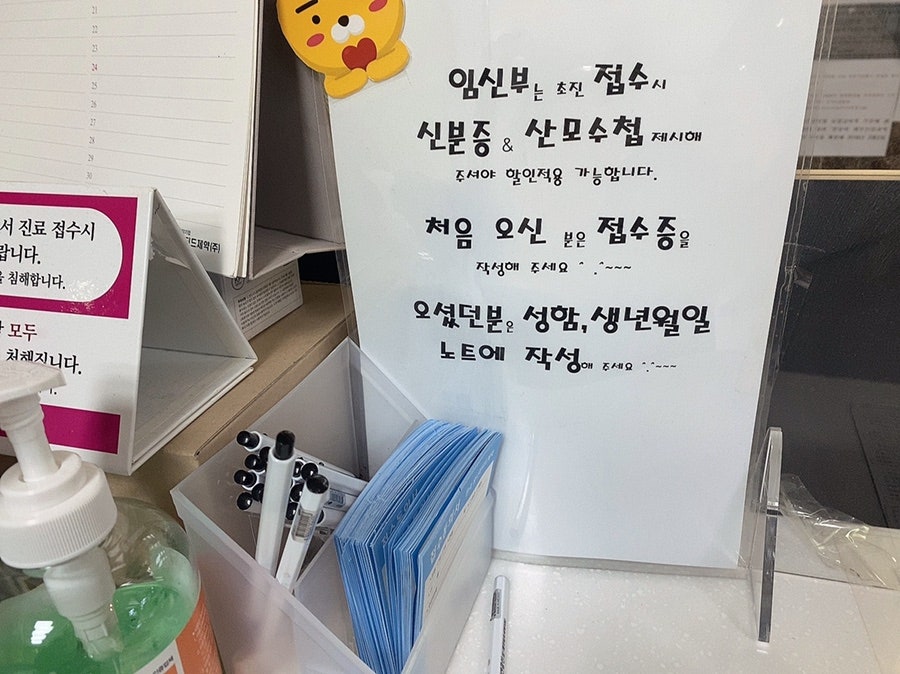 21
22
23
24
25
26
27
28
29
30
서 진료 접수시
랍니다.
침해합니다.
모두
처해집니다.
드제약(주)
임신부는 초진 접수시
신분증 & 산모수첩 제시해
주셔야 할인적용 가능합니다.
처음 오신 분은 접수증을
작성해 주세요 ^.^~~~
오셨던분은 성함,생년월일
노트에 작성해 주세요 ^.^~~~